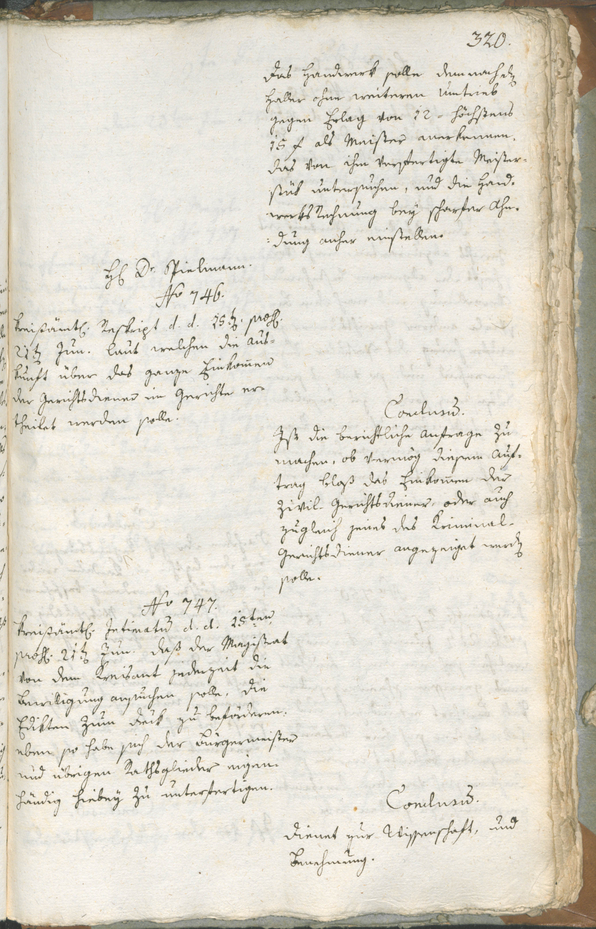 320.
das Handwerk solle demnach den
Haller ohne weiteren Umtrieb
gegen Erlag von 12 - höchstens
15 f als Meister anerkennen,
das von ihm verfertigte Meister-
stük untersuchen, und die Hand-
werks Rechnung bey scharfer Ahn-
dung anher einstellen.
H. Dr. Spielmann.
No 746.
Kreisämtl. Reskript d. d. 15t. prs.
21t. Jun. laut welchen die Aus-
kunft über das ganze Einkomen
der Gerichtsdiener im Gerichte er-
theilet werden solle.
Conclusum.
Ist die berichtliche Anfrage zu
machen, ob vermög diesem Auf-
trag bloß das Einkomen der
Zivil-Gerichtsdiener, oder auch
zugleich jenes des Kriminal-
Gerichtsdiener angezeiget werden
solle.
No 747.
Kreisämtl. Intimatum d. d. 15ten
prs. 21t. Jun. daß der Magistrat
von dem Kreisamt jederzeit die
Bewilligung ansuchen solle, die
Edikten zum Druk zu befördern,
eben so habe sich der Bürgermeister
und übrigen Rathsglieder eigen-
händig hiebey zu unterfertigen.
Conclusum.
Dienet zur Wissenschaft, und
Benehmung.